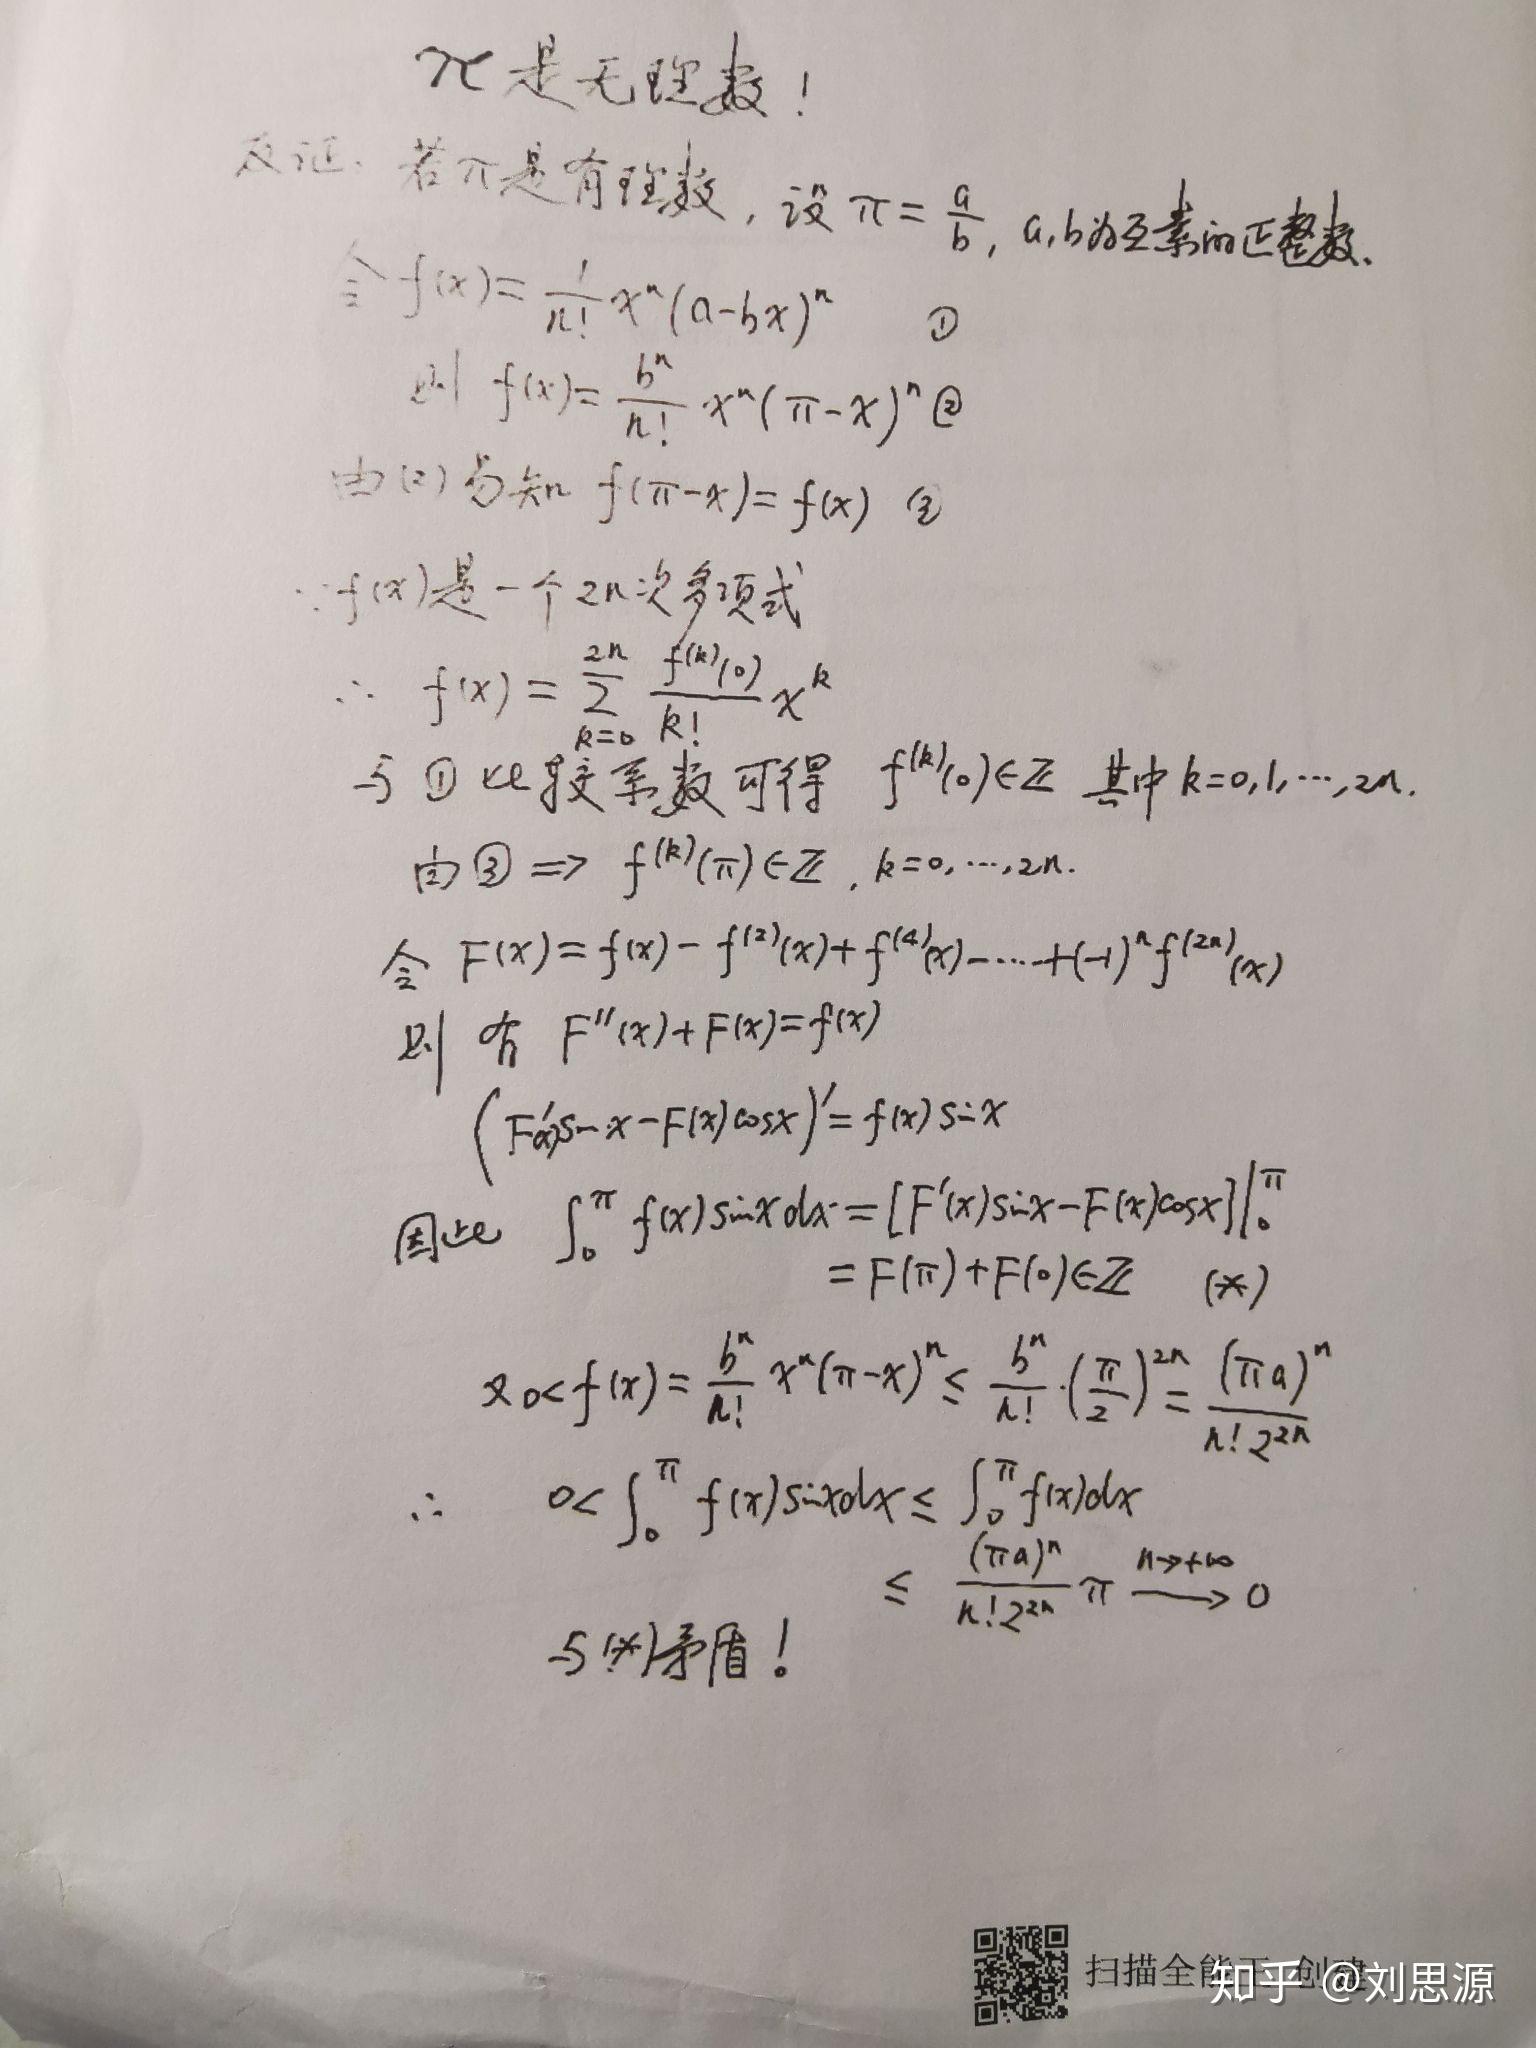 π是无理数！
反证. 若π是有理数，设 π = a/b, a,b为互素的正整数.
令 f(x) = 1/n! xⁿ(a-bx)ⁿ ①
则 f(x) = bⁿ/n! xⁿ(π-x)ⁿ ②
由(2)易知 f(π-x) = f(x) ③
∵ f(x)是一个2n次多项式
∴ f(x) = ∑_{k=0}^{2n} f^(k)(0)/k! x^k
与①比较系数可得 f^(k)(0)∈ℤ 其中 k=0,1,…,2n.
由③ => f^(k)(π)∈ℤ, k=0,…,2n.
令 F(x) = f(x) - f^(2)(x) + f^(4)(x) - … + (-1)ⁿ f^(2n)(x)
则有 F″(x)+F(x)=f(x)
(F′(x)sin x - F(x)cosx)′ = f(x) sin x
因此 ∫₀^π f(x) sinx dx = [F′(x)sinx - F(x)cosx]|₀^π
= F(π)+F(0)∈ℤ (*)
又 0< f(x) = bⁿ/n! xⁿ(π-x)ⁿ ≤ bⁿ/n! · (π/2)^{2n} = (πa)ⁿ/n! 2^{2n}
∴ 0< ∫₀^π f(x) sinx dx ≤ ∫₀^π f(x)dx
≤ (πa)ⁿ/n! 2^{2n} π —n→+∞→ 0
与(*)矛盾！
扫描全能王 创建
知乎 @刘思源